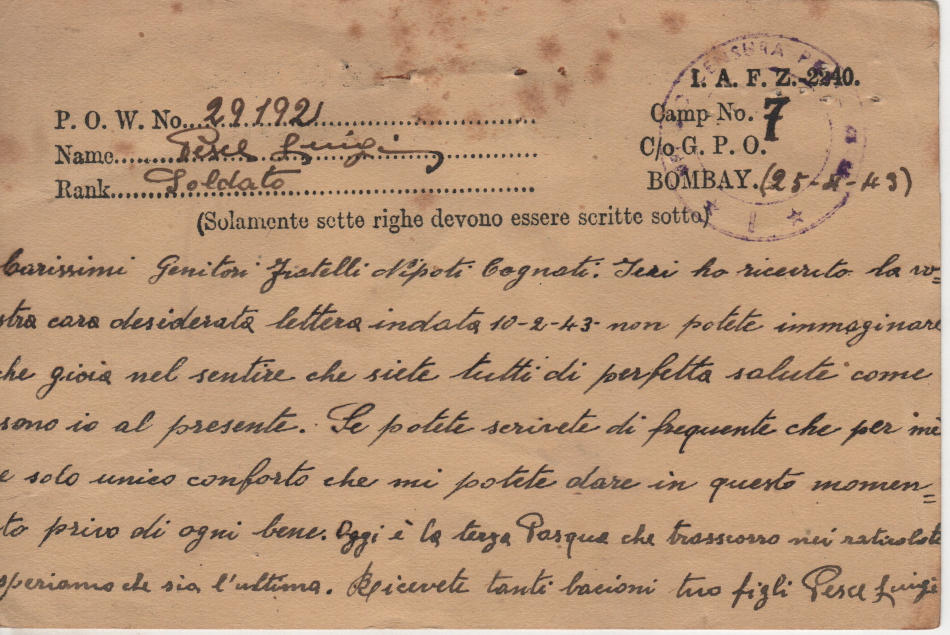 I. A. F. Z. 2240.
P. O. W. No. 291921
Camp No. 7
Name Pesce Luigi
C/o G. P. O.
Rank Soldato
BOMBAY. (25-4-43)
(Solamente sette righe devono essere scritte sotto)
CENSURA
Carissimi Genitori Fratelli Nipoti Cognati. Ieri ho ricevuto la vo=
stra cara desiderata lettera in data 10-2-43- non potete immaginare
che gioia nel sentire che siete tutti di perfetta salute come
sono io al presente. Se potete scrivete di frequente che per me
e solo unico conforto che mi potete dare in questo momen=
to privo di ogni bene. Oggi è la terza Pasqua che trascorro nei
speriamo che sia l'ultima. Ricevete tanti bacioni tuo figli Pesce Luigi